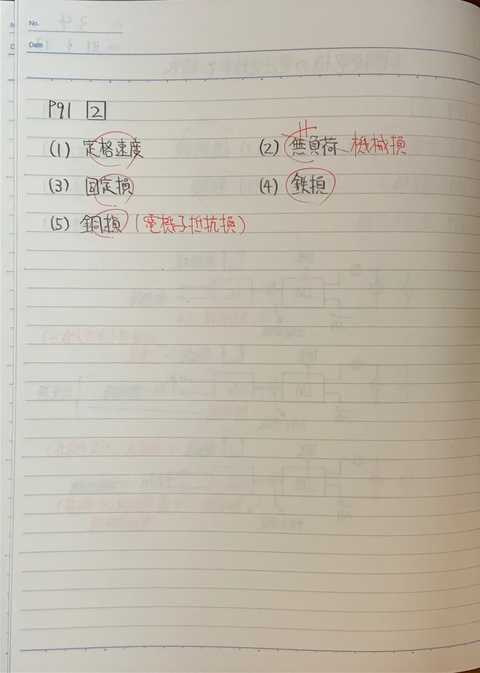 No.
Date
P91 2
(1) 定格速度 (2) 無負荷 機械損
(3) 固定損 (4) 鉄損
(5) 銅損 (電機子抵抗損)